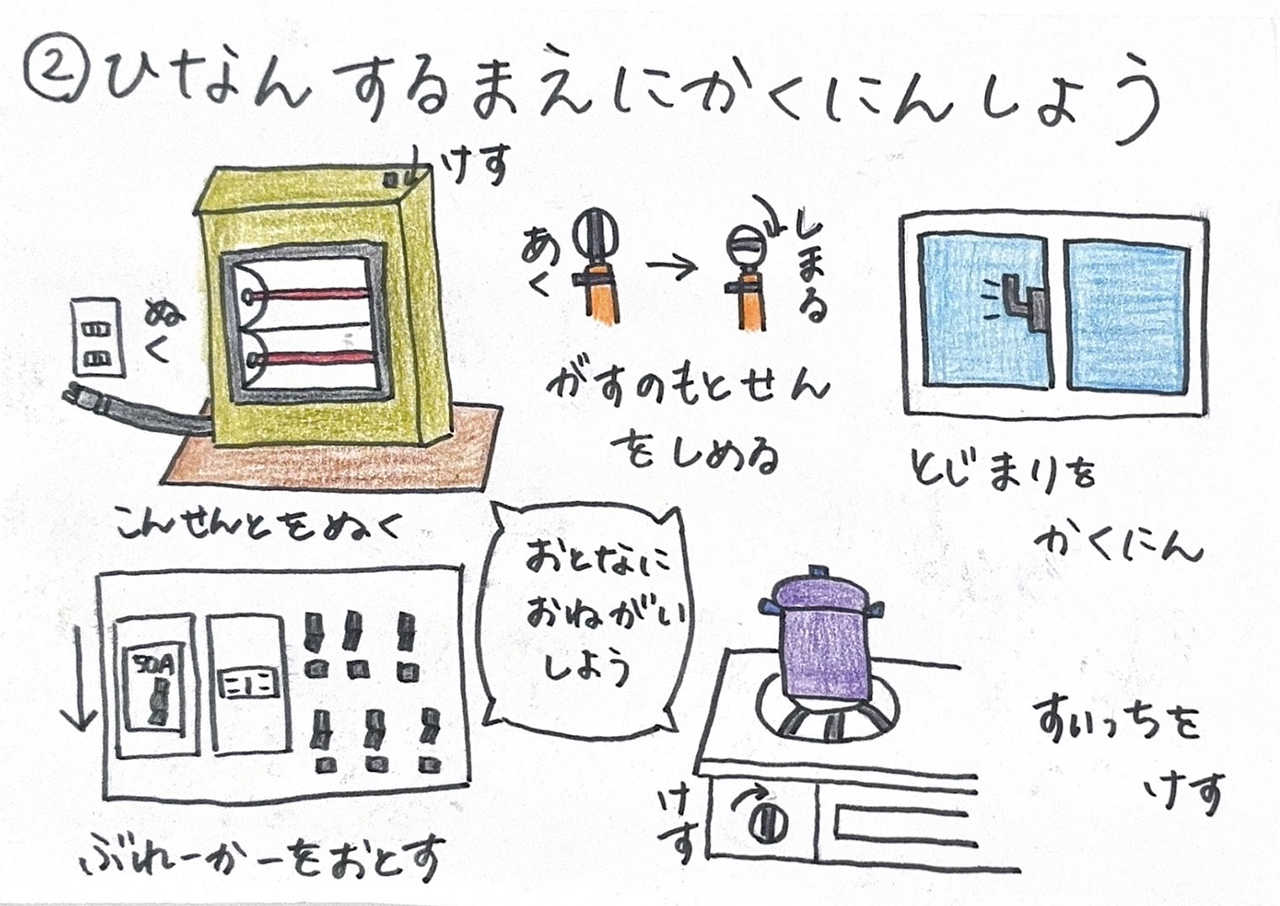 ②ひなんするまえにかくにんしよう
けす
ぬく
こんせんとをぬく
あく
→
しまる
がすのもとせん
をしめる
とじまりを
かくにん
50A
ぶれーかーをおとす
おとなに
おねがい
しよう
けす
すいっちを
けす